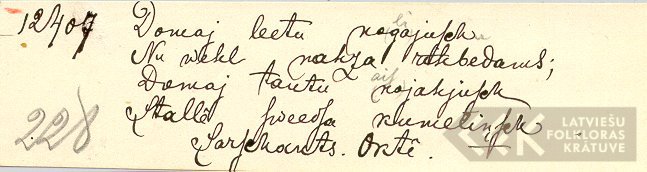 12407
Domaj leetu nogajuſch
Nu wehl nahza rihbedams;
Domaj tautu nojahjuſch
Stallî ſweedſa kumeliņſch
Sarſchants. Oktê.
228
LATVIEŠU
FOLKLORAS
KRĀTUVE